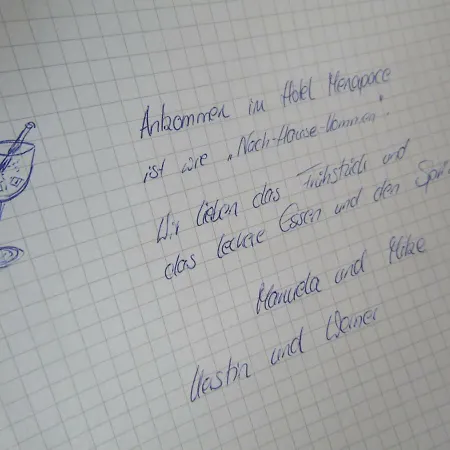 Ankommen im Hotel Menapace
ist wie „Nach-Hause-kommen".
Wir lieben das Frühstück und
das leckere Essen und den
Manuela und Mike
und